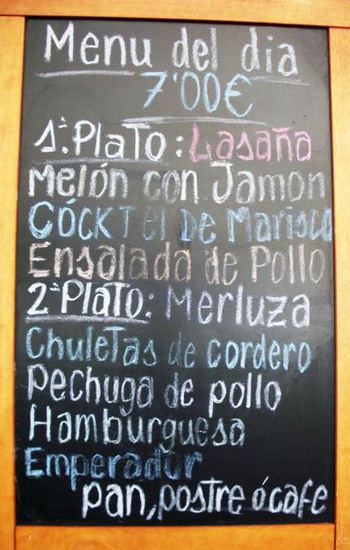 Menu del dia
7'00€
1º. Plato: Lasaña
Melón con Jamon
Cócktel de Marisco
Ensalada de Pollo
2º Plato: Merluza
Chuletas de cordero
pechuga de pollo
Hamburguesa
Emperador
pan, postre ó cafe